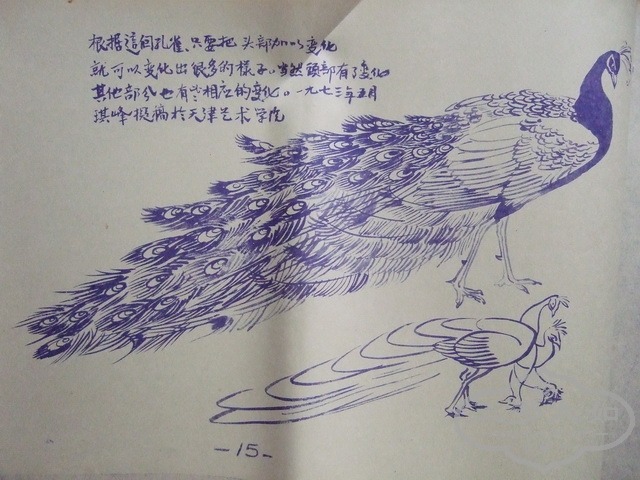 根据這個孔雀、只要把头部加以变化
就可以变化出很多的樣子。当然頭部有了变化
其他部分也有些相应的变化。一九七三年五月
琪峰拟稿於天津艺术学院
-15-